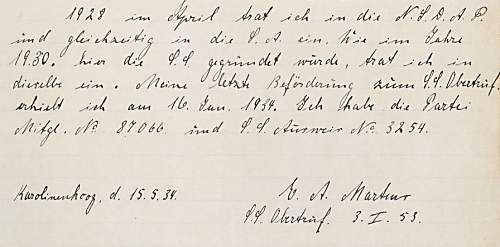 1928 im April trat ich in die N.S.D.A.P.
und gleichzeitig in die S.A. ein. Wie im Jahre
1930. hier die S.S. gegründet wurde, trat ich in
dieselbe ein. Meine letzte Beförderung zum S.S. Obertruf.
erhielt ich am 16. Jan. 1934. Ich habe die Partei
Mitgl. No 87066. und S.S. Ausweis No. 3254.
Karolinenkoog, d. 15.5.34.
E. A. Martens
S.S. Obertruf. 3. I. 53.